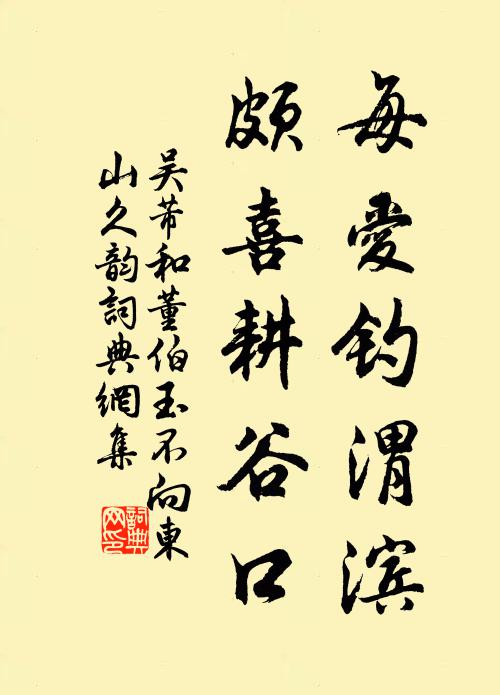 每愛钓渭滨
颇喜耕谷口
吴芾和董伯玉不向東
山久韵詞典網集
詞典
网印